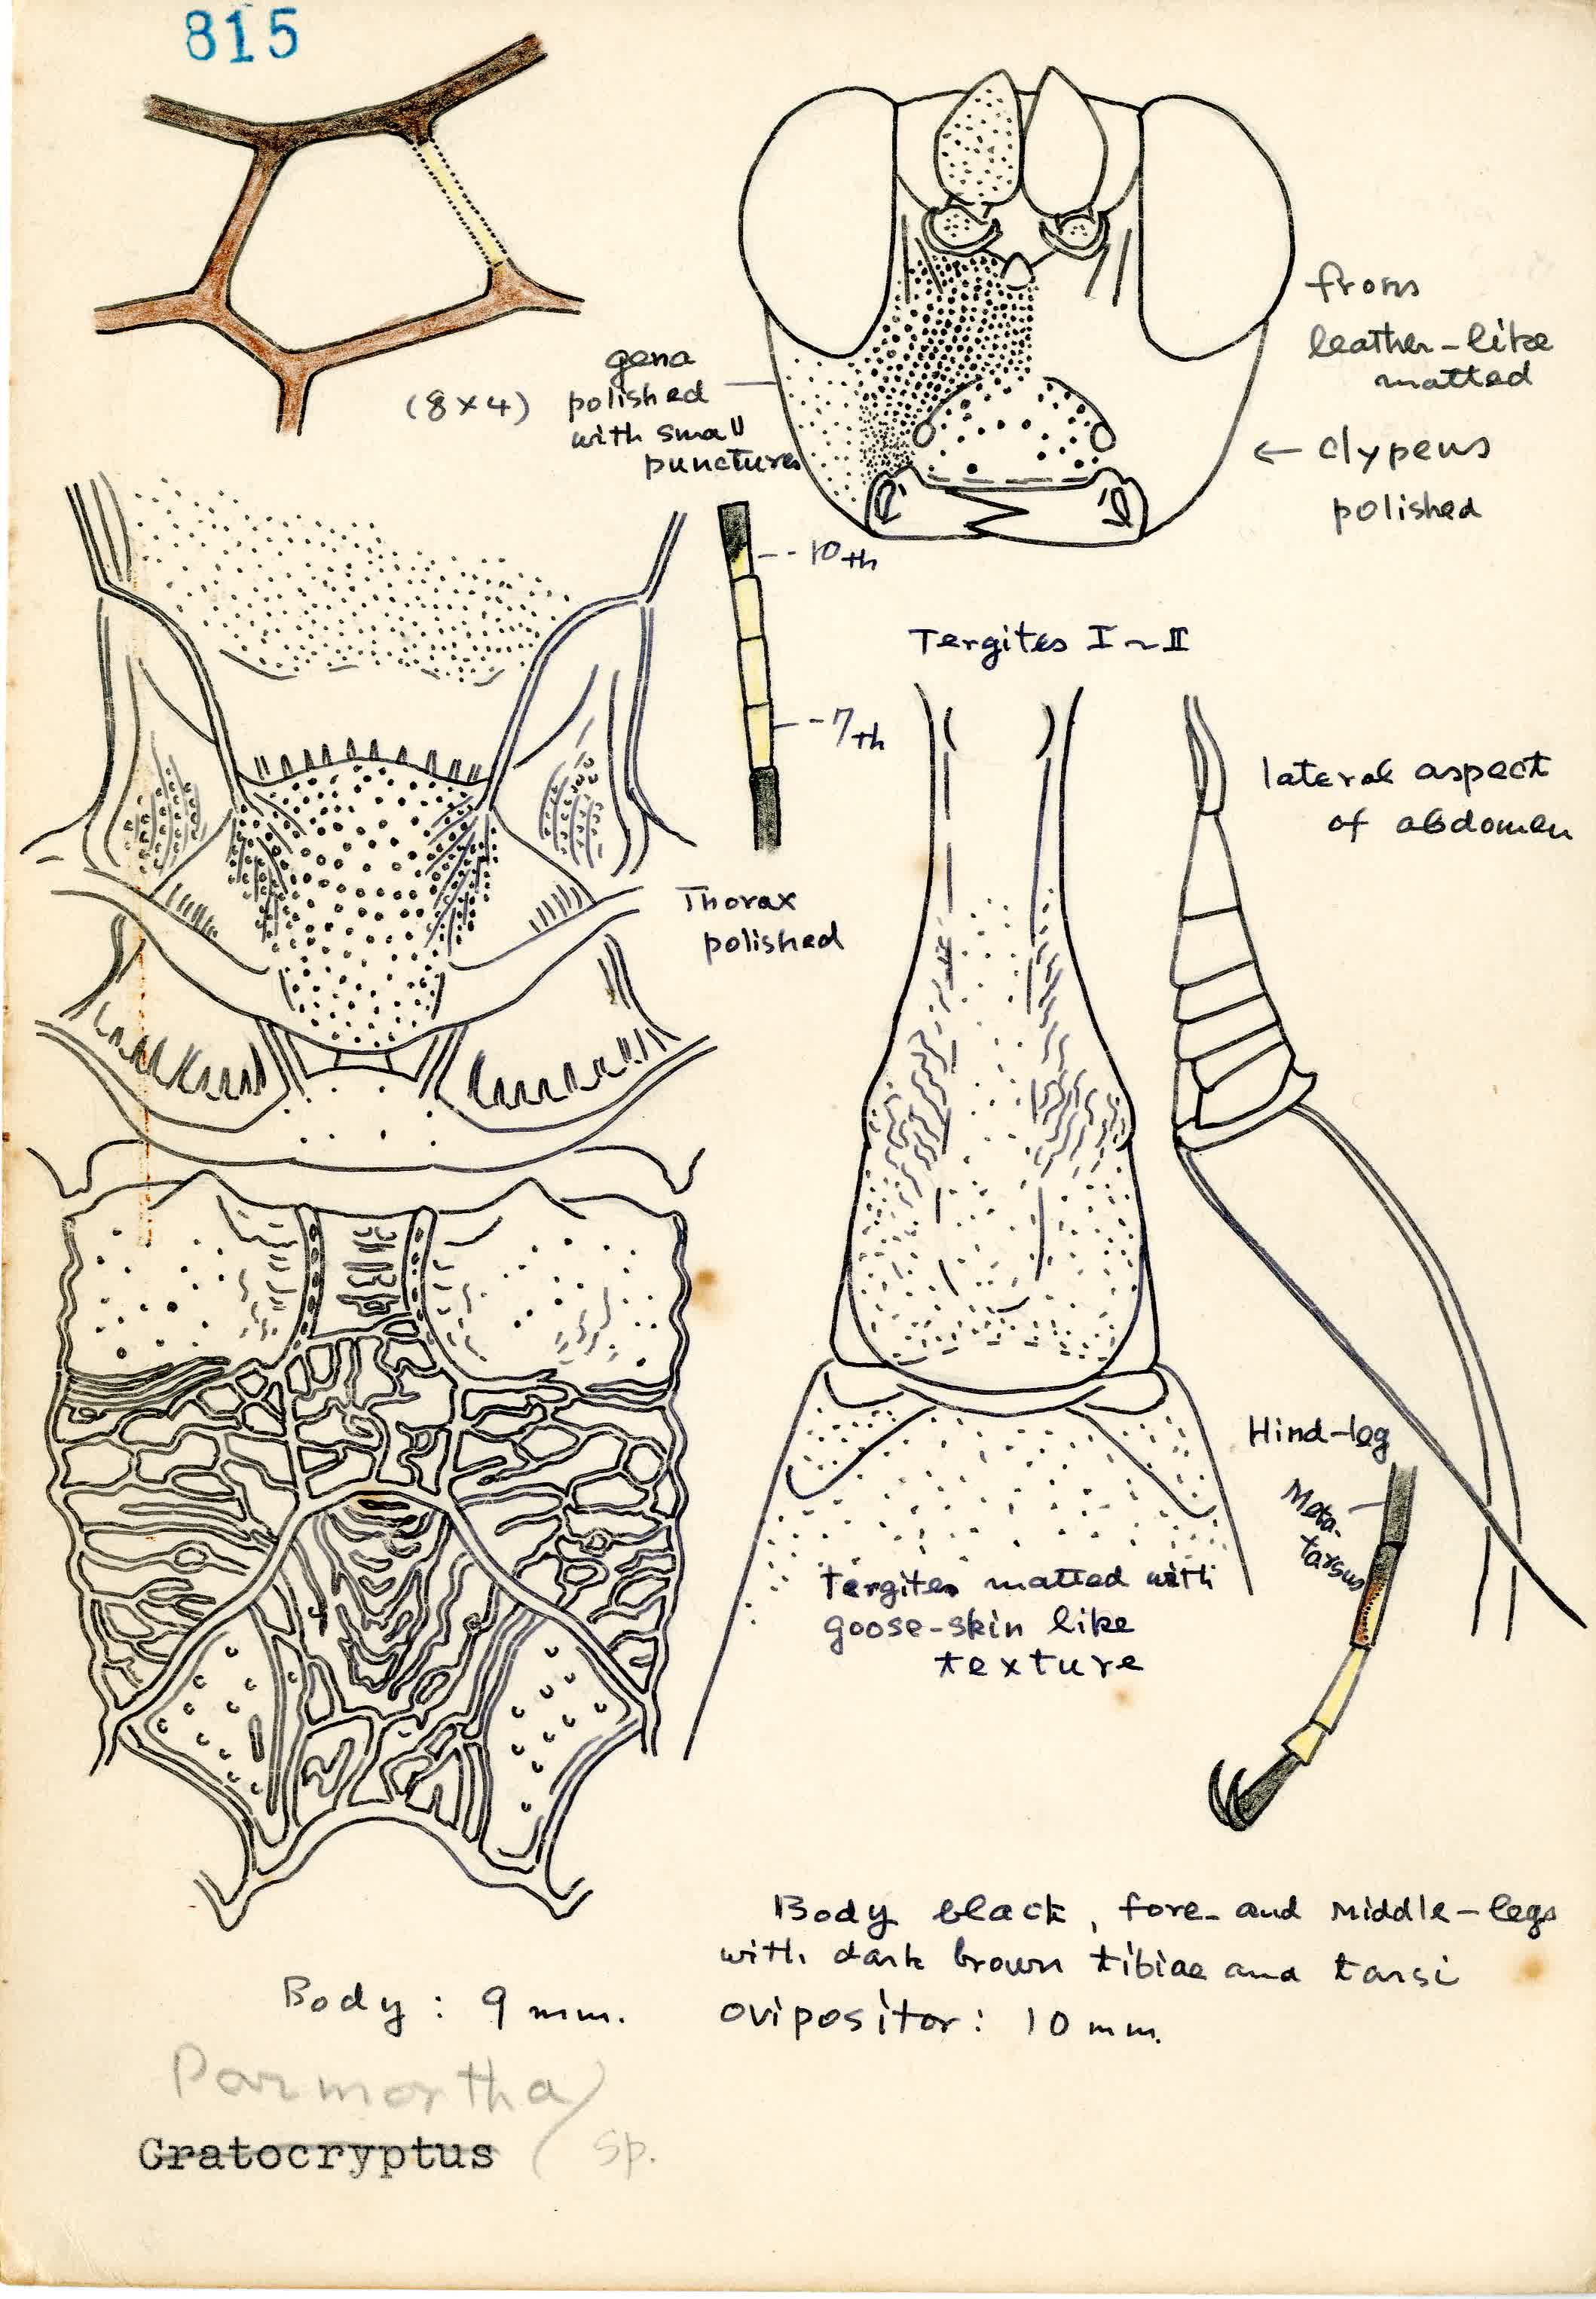 815
(8×4)
gena
polished
with small
punctures
frons
leather-like
matted
← clypeus
polished
10th
7th
Tergites I~II
lateral aspect
of abdomen
Thorax
polished
Hind-leg
Meta-
tarsus
Tergites matted with
goose-skin like
texture
Body black, fore- and middle-legs
with dark brown tibiae and tarsi
Body: 9 mm.
ovipositor: 10 mm.
Parmortha
Gratocryptus sp.